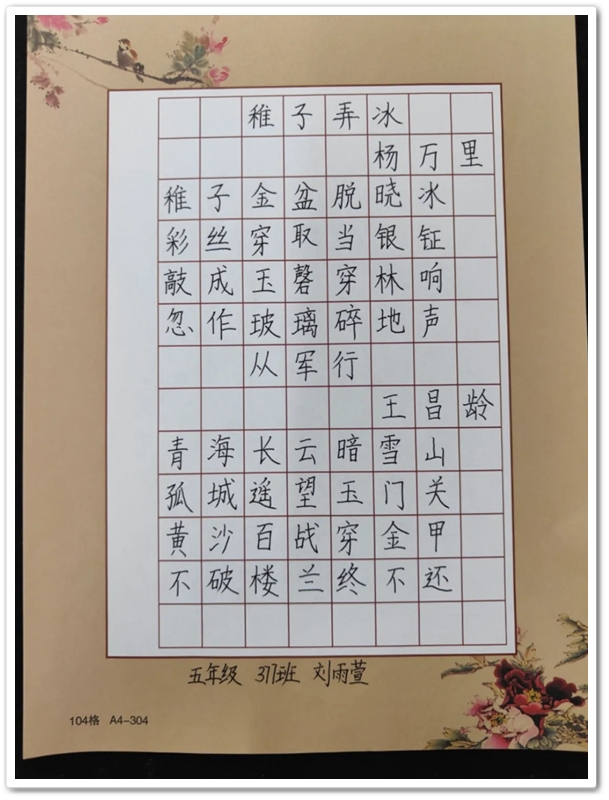 稚子弄冰
杨万里
稚子金盆脱晓冰
彩丝穿取当银钲
敲成玉磬穿林响
忽作玻璃碎地声
从军行
王昌龄
青海长云暗雪山
孤城遥望玉门关
黄沙百战穿金甲
不破楼兰终不还
五年级 317班 刘雨萱
104格 A4-304